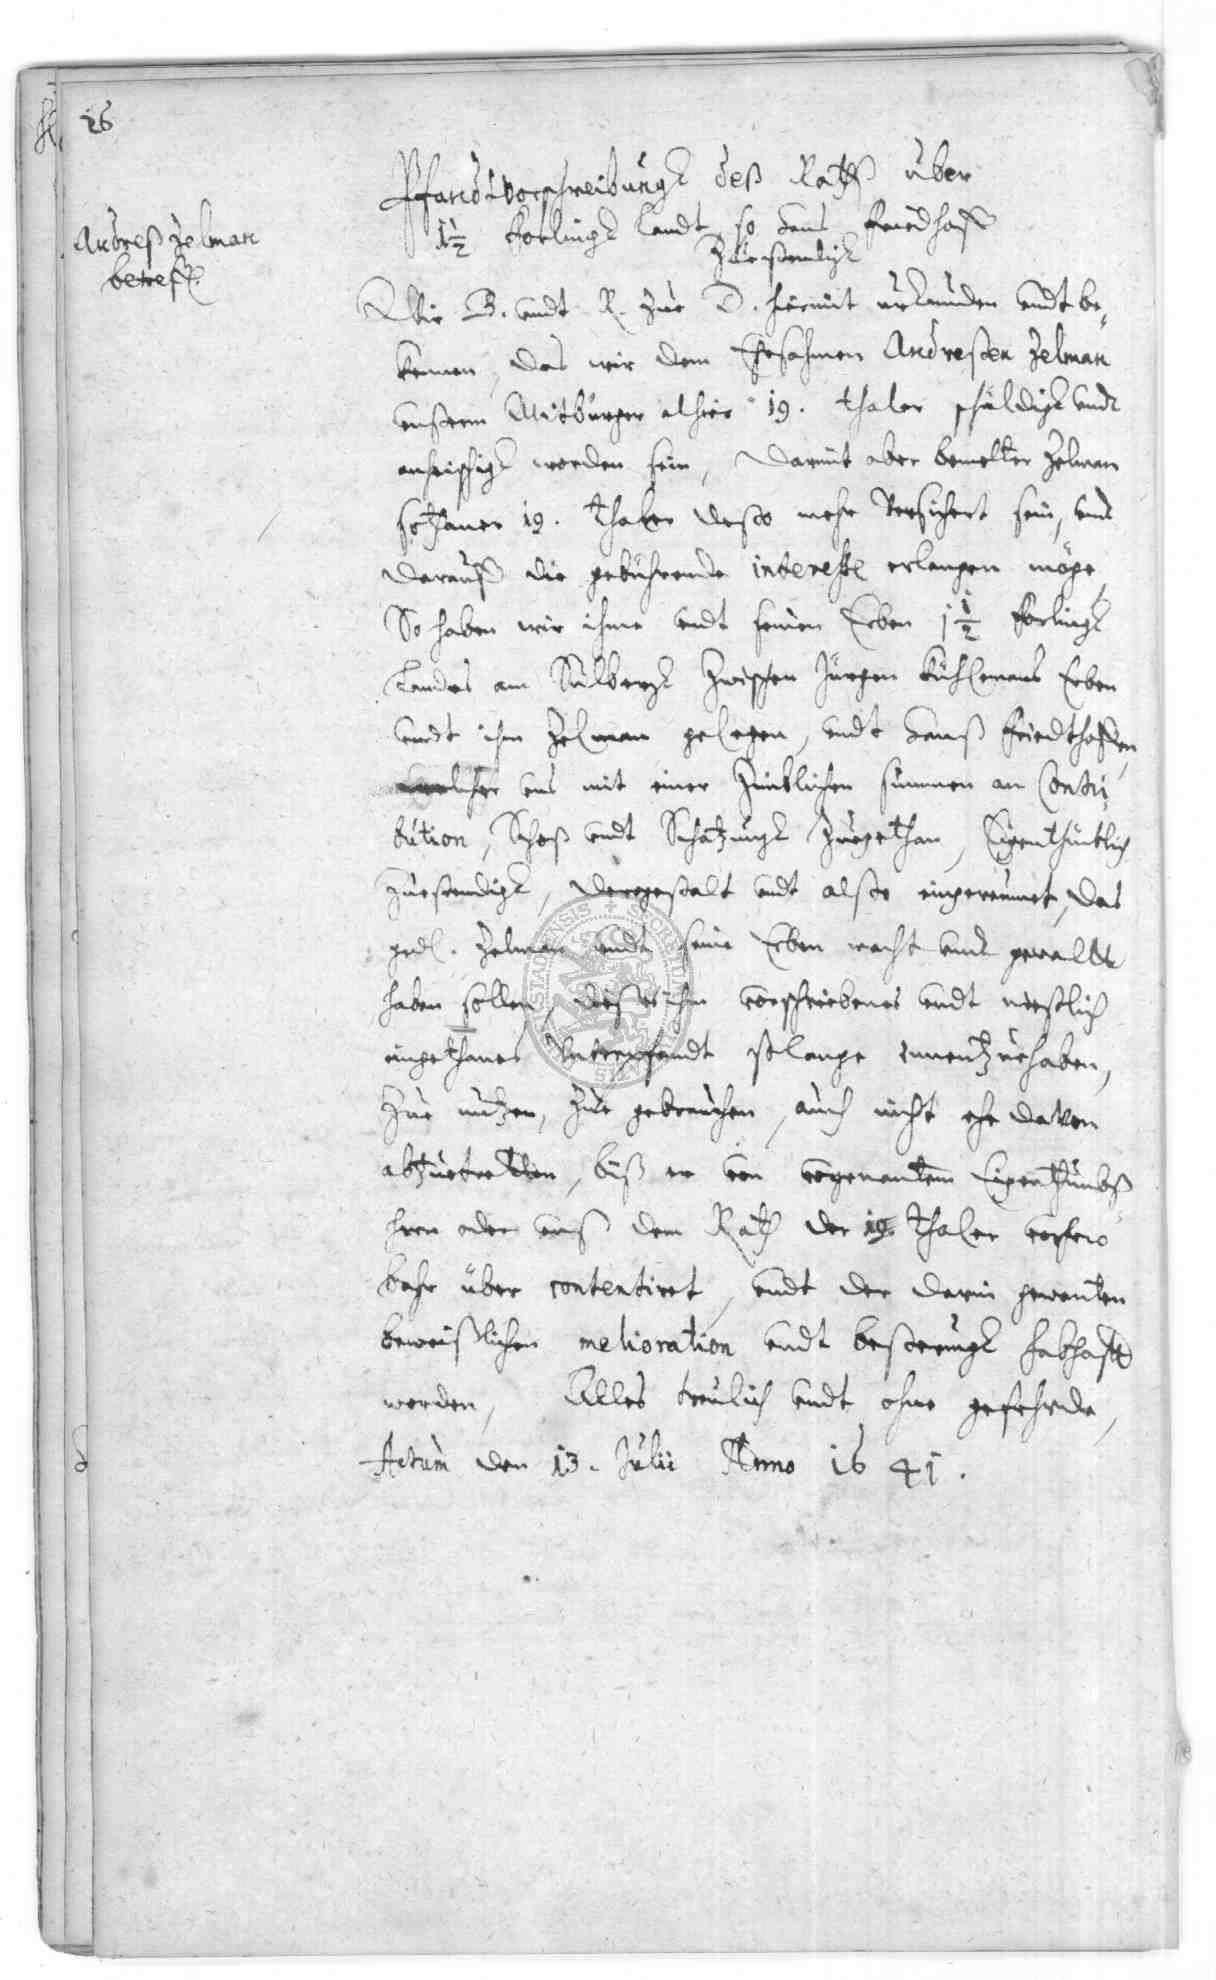 26
Andreß Zelman
betreff.
Pfandtvorschreibungk deß Rathß über
1 1/2 forlingk landt so Hans Friedhoff
zustendigk
Wir B. undt R. zue D. hiermit urkunden undt be-
kennen, das wir dem Ehrsahmen Andreßen Zelman
unßerm Mitbürger alhier 19. thaler schüldigk undt
anheischigk worden sein, Darmit aber bemelter Zelman
sothaner 19. thaler desto mehr versichert sein, und
darauff die gebührende interesse erlangen möge,
So haben wir ihme undt seinen Erben 1 1/2 forlingk
Landes am Sülbergk zwischen Jürgen Kühlemans Erben
undt ihm Zelman gelegen, undt Hanß Friedthoffen,
welcher uns mit einer zimblichen summen an Contri-
bution, Schoß undt Schatzungk zugethan, Eigenthümblich
zustendigk, dergestalt undt alßo eingereumet, das
gedl. Zelman undt seine Erben macht und gewaldt
haben sollen, dießes ihm vorschriebenes undt würcklich
eingethanes Unterpfandt solange innentzuehaben,
zue nutzen, zue gebrauchen, auch nicht ehe davon
abzutretten, biß er von vorgenantem Eigenthümbß
hern oder unß dem Rath der 19 thaler
bahr über contentiret, undt der darin gewanten
beweißlichen melioration undt beßerungk habhafft
worden, Alles treulich undt ohne gefehrde,
Actum den 13. Julii Anno 1641.